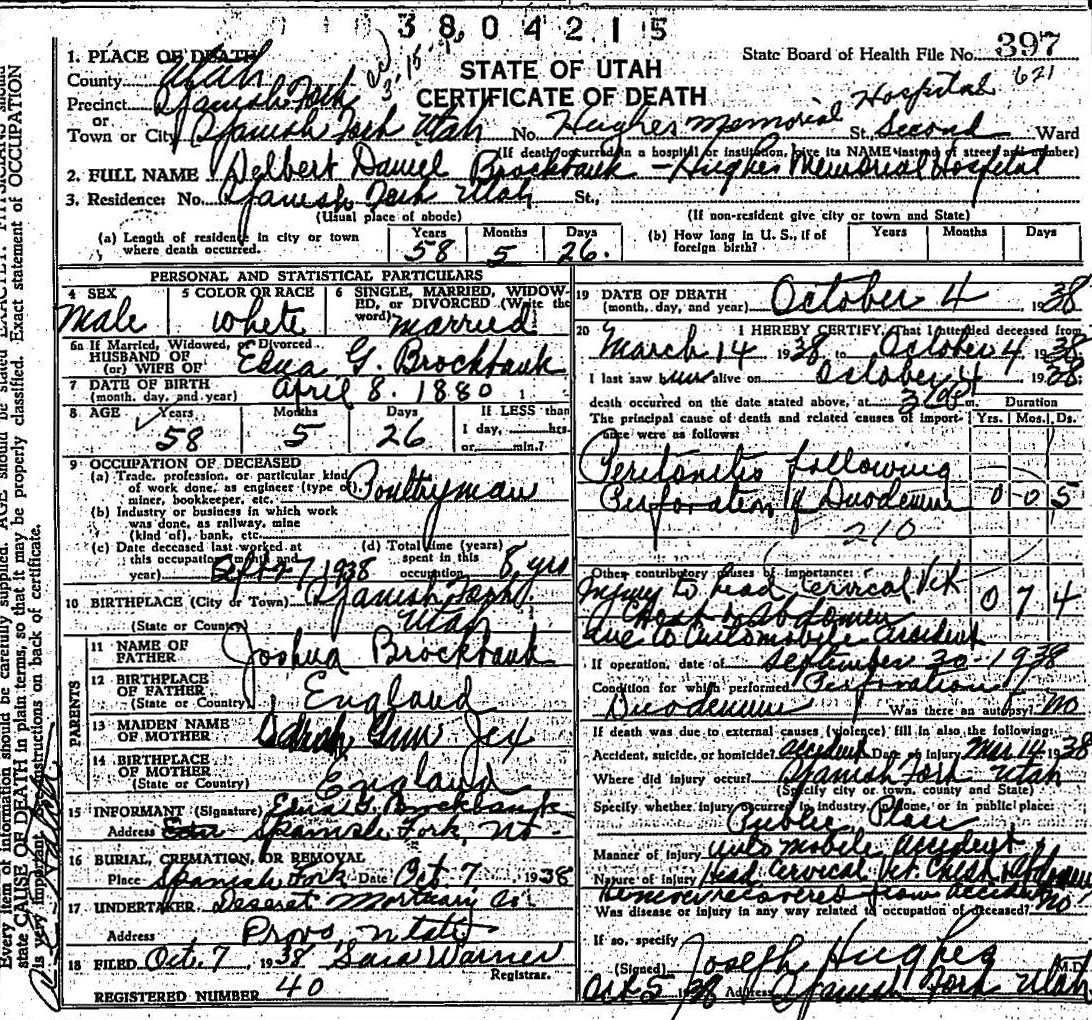 3804215
1. PLACE OF DEATH
State Board of Health File No. 397
County Utah
STATE OF UTAH
621
Precinct Spanish Fork
CERTIFICATE OF DEATH
Hospital
or
Town or City Spanish Fork Utah No. Hughes Memorial St. Second Ward
(If death occurred in a hospital or institution, give its NAME instead of street and number)
2. FULL NAME Delbert Daniel Brockbank - Hughes Memorial Hospital
3. Residence: No. Spanish Fork Utah St.,
(Usual place of abode) (If non-resident give city or town and State)
(a) Length of residence in city or town where death occurred. Years 58 Months 5 Days 26.
(b) How long in U. S., if of foreign birth? Years Months Days
PERSONAL AND STATISTICAL PARTICULARS
4 SEX Male
5 COLOR OR RACE white
6 SINGLE, MARRIED, WIDOWED, or DIVORCED (Write the word) married
6a If Married, Widowed, or Divorced
HUSBAND OF
(or) WIFE OF Edna G. Brockbank
7 DATE OF BIRTH
(month, day, and year) April 8. 1880
8 AGE Years 58 Months 5 Days 26 If LESS than 1 day, hrs. or min.?
9 OCCUPATION OF DECEASED
(a) Trade, profession, or particular kind
of work done, as engineer (type of),
miner, bookkeeper, etc. Poultryman
(b) Industry or business in which work
was done, as railway, mine
(kind of), bank, etc.
(c) Date deceased last worked at
this occupation (month and
year) Sept 27 1938
(d) Total time (years)
spent in this
occupation 8 yrs
10 BIRTHPLACE (City or Town) Spanish Fork
(State or Country) Utah
PARENTS
11 NAME OF
FATHER Joshua Brockbank
12 BIRTHPLACE
OF FATHER
(State or Country) England
13 MAIDEN NAME
OF MOTHER Sarah Ann Jex
14 BIRTHPLACE
OF MOTHER
(State or Country) England
15 INFORMANT (Signature) Edna G. Brockbank
Address Spanish Fork, Ut
16 BURIAL, CREMATION, OR REMOVAL
Place Spanish Fork Date Oct 7 1938
17 UNDERTAKER Deseret Mortuary Co.
Address Provo, Utah
18 FILED Oct. 7, 1938 Sara Warner
Registrar.
REGISTERED NUMBER 40
19 DATE OF DEATH
(month, day, and year) October 4 1938
20 I HEREBY CERTIFY, That I attended deceased from
March 14 1938 to October 4 1938
I last saw him alive on October 4 1938
death occurred on the date stated above, at m. Duration
The principal cause of death and related causes of importance were as follows: Yrs. Mos. Ds.
Peritonitis following
Perforation of Duodenum 0 0 5
210
Other contributory causes of importance:
Injury to head Cervical Vet
Chest & Abdomen 0 7 4
due to Automobile accident
If operation, date of September 30 - 1938
Condition for which performed Perforation
Duodenum Was there an autopsy? no
If death was due to external causes (violence) fill in also the following:
Accident, suicide, or homicide? accident Date of injury Mar 14 1938
Where did injury occur? Spanish Fork Utah
(Specify city or town, county and State)
Specify whether injury occurred in industry, in home, or in public place:
Public Place
Manner of injury Automobile accident
Nature of injury Head Cervical Vet. Chest & Abdomen
He never recovered from accident
Was disease or injury in any way related to occupation of deceased? no
If so, specify
(Signed) Joseph Hughes M.D.
Oct 5 1938 Address Spanish Fork Utah
Every item of information should be carefully supplied. AGE should be stated EXACTLY. PHYSICIANS should
state CAUSE OF DEATH in plain terms, so that it may be properly classified. Exact statement of OCCUPATION
is very important. Instructions on back of certificate.